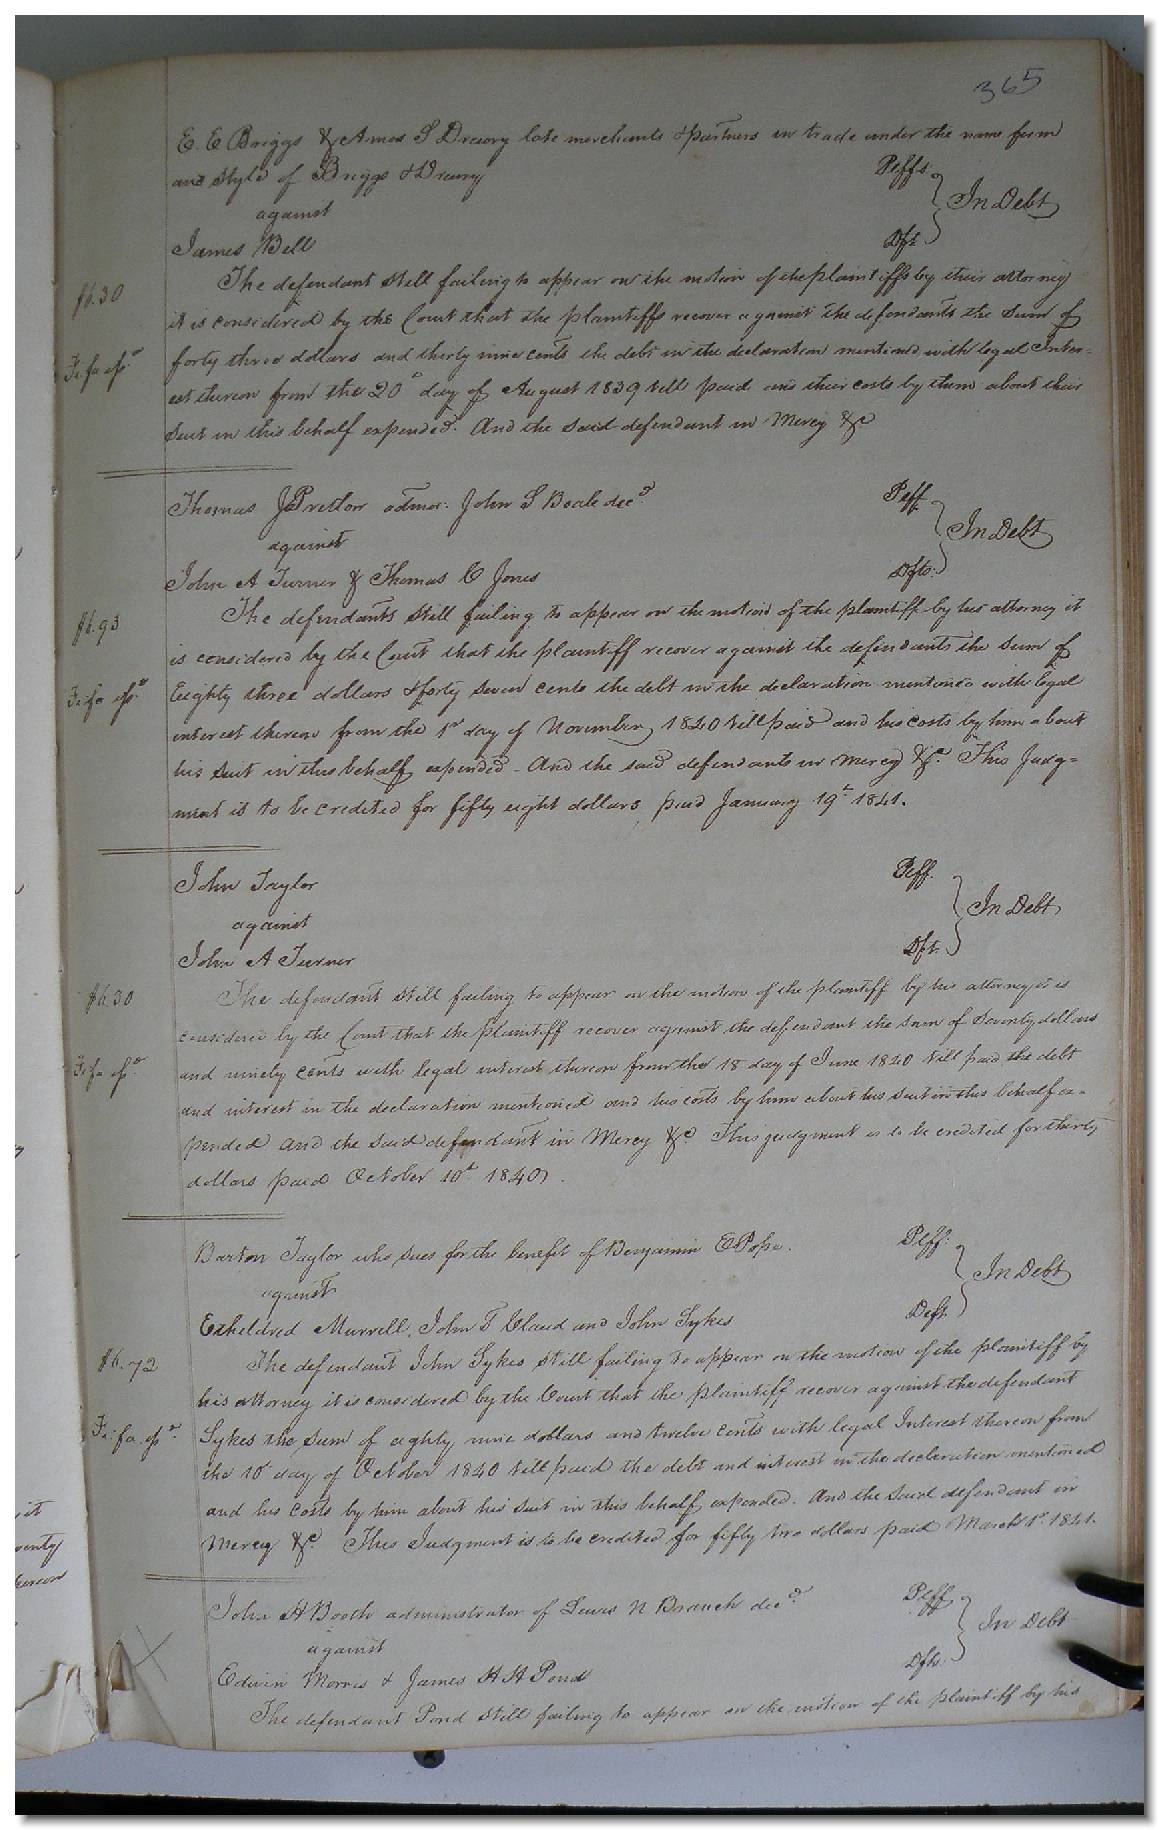 365
E. E Briggs & Amos S Drewry late merchants & partners in trade under the name firm
and style of Briggs & Drewry Plffs
against In Debt
James Bell Dft
The defendant still failing to appear on the motion of the plaintiffs by their attorney
$6.30
it is considered by the Court that the plaintiffs recover against the defendants the sum of
forty three dollars and thirty nine cents the debt in the declaration mentioned with legal Inter-
Fi: fa
est thereon from the 20th day of August 1839 till paid and their costs by them about their
suit in this behalf expended. And the said defendant in Mercy &c
Thomas J Pretlow admor: John S Beale decd Plff
against In Debt
John A Turner & Thomas C Jones Dfts:
The defendants still failing to appear on the motion of the plaintiff by his attorney it
$6.93
is considered by the Court that the plaintiff recover against the defendants the sum of
Eighty three dollars & forty seven cents the debt in the declaration mentioned with legal
Fi: fa
interest thereon from the 1st day of November 1840 till paid and his costs by him about
his suit in this behalf expended - And the said defendants in Mercy &c. This Judg=
ment is to be credited for fifty eight dollars paid January 19th 1841.
John Taylor Plff.
against In Debt
John A Turner Dft.
The defendant still failing to appear on the motion of the plaintiff by his attorney it is
$6.30
considered by the Court that the plaintiff recover against the defendant the sum of Seventy dollars
and ninety cents with legal interest thereon from the 18 day of June 1840 till paid the debt
Fi: fa
and interest in the declaration mentioned and his costs by him about his suit in this behalf ex-
pended And the said defendant in Mercy &c This judgment is to be credited for thirty
dollars paid October 10th 1840.
Barton Taylor who sues for the benefit of Benjamin E Pope. Plff:
against In Debt
Exheldred Murrell, John T Claud and John Sykes Deft.
The defendant John Sykes still failing to appear on the motion of the plaintiff by
$6.72
his attorney it is considered by the Court that the plaintiff recover against the defendant
Sykes the sum of eighty nine dollars and twelve cents with legal Interest thereon from
Fi: fa
the 10 day of October 1840 till paid the debt and interest in the declaration mentioned
and his costs by him about his suit in this behalf expended. And the said defendant in
Mercy &c. This Judgment is to be credited for fifty two dollars paid March 1st 1841.
John A Booth administrator of Lewis N Branch decd Plff
against In Debt
Edwin Morris & James H H Pond Dfts.
The defendant Pond still failing to appear on the motion of the plaintiff by his